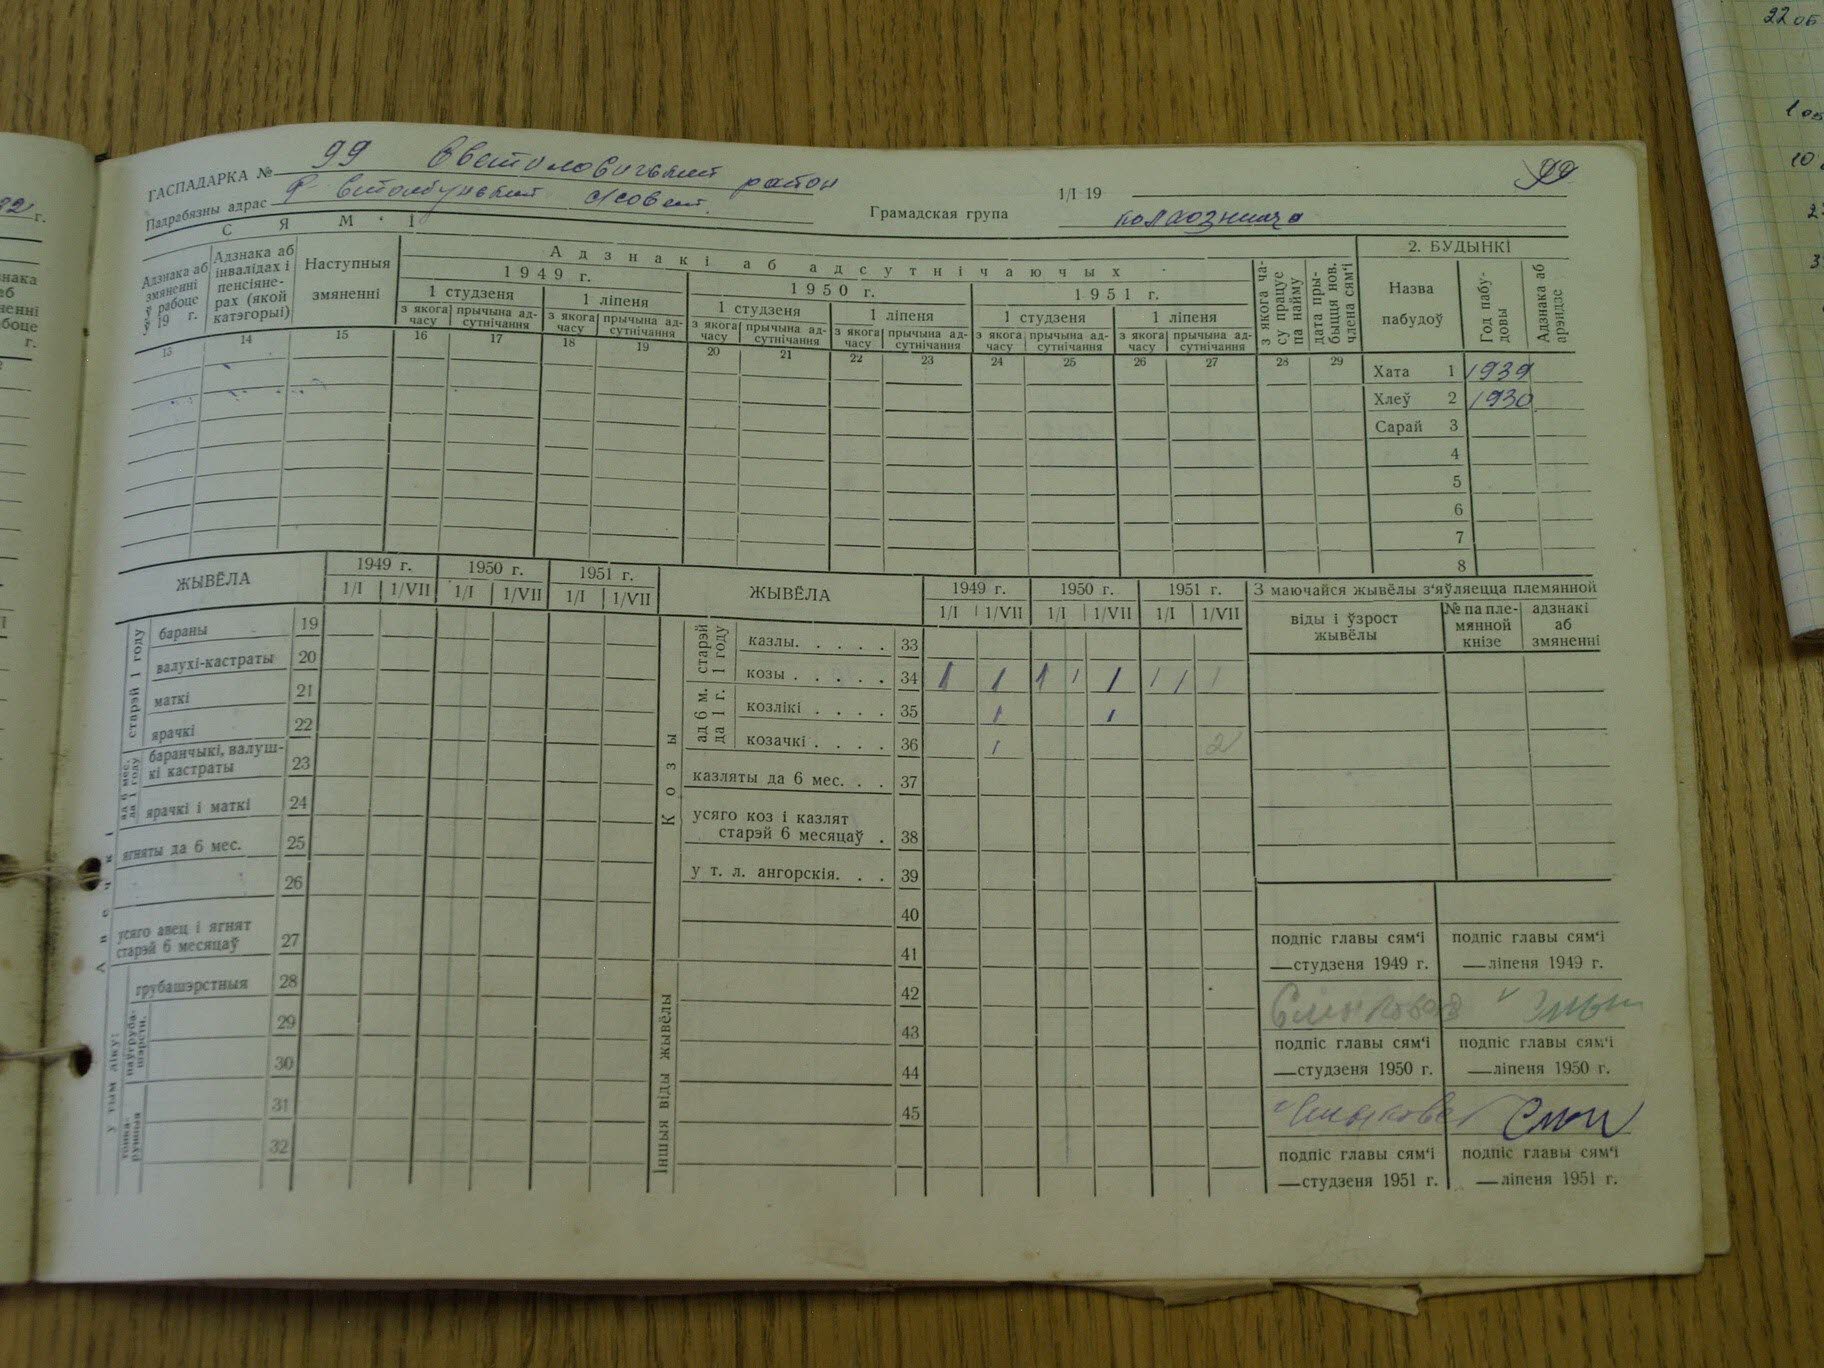 22 об
1 об
10
ГАСПАДАРКА № 99 Светиловичский район
Падрабязны адрас с/совет
1/I 19
99
Грамадская група колхозница
СЯМ'І
Адзнака аб змяненні ў рабоце ў 19 г.
Адзнака аб інвалідах і пенсіяне-рах (якой катэгорыі)
Наступныя змяненні
Адзнакі аб адсутнічаючых
1949 г. 1950 г. 1951 г.
1 студзеня 1 ліпеня 1 студзеня 1 ліпеня 1 студзеня 1 ліпеня
з якога часу прычына ад-сутнічання з якога часу прычына ад-сутнічання з якога часу прычына ад-сутнічання з якога часу прычына ад-сутнічання з якога часу прычына ад-сутнічання з якога часу прычына ад-сутнічання
з якога ча-су працуе па найму
дата пры-быцця нов. члена сям'і
2. БУДЫНКІ
Назва пабудоў
Год пабу-довы
Адзнака аб арэндзе
13 14 15 16 17 18 19 20 21 22 23 24 25 26 27 28 29
Хата 1 1939
Хлеў 2 1930
Сарай 3
4
5
6
7
8
ЖЫВЁЛА
1949 г. 1950 г. 1951 г.
1/I 1/VII 1/I 1/VII 1/I 1/VII
Авечкі
старэй 1 году
бараны 19
валухі-кастраты 20
маткі 21
ярачкі 22
ад 6 мес. да 1 году
баранчыкі, валуш-кі кастраты 23
ярачкі і маткі 24
ягняты да 6 мес. 25
26
усяго авец і ягнят старэй 6 месяцаў 27
у тым ліку:
грубашэрстныя 28
29
30
31
32
ЖЫВЁЛА
1949 г. 1950 г. 1951 г.
1/I 1/VII 1/I 1/VII 1/I 1/VII
Козы
старэй 1 году
казлы. . . . . 33
козы . . . . . 34 1 1 1 1 1 1 1 1
ад 6 м. да 1 г.
козлікі . . . . 35 1 1
козачкі . . . . 36 1 2
казляты да 6 мес. . . 37
усяго коз і казлят старэй 6 месяцаў . 38
у т. л. ангорскія. . . 39
40
41
Іншыя віды жывёлы
42
43
44
45
З маючайся жывёлы з'яўляецца племянной
віды і ўзрост жывёлы
№ па пле-мянной кнізе
адзнакі аб змяненні
подпіс главы сям'і
—студзеня 1949 г.
подпіс главы сям'і
—ліпеня 1949 г.
подпіс главы сям'і
—студзеня 1950 г.
подпіс главы сям'і
—ліпеня 1950 г.
подпіс главы сям'і
—студзеня 1951 г.
подпіс главы сям'і
—ліпеня 1951 г.